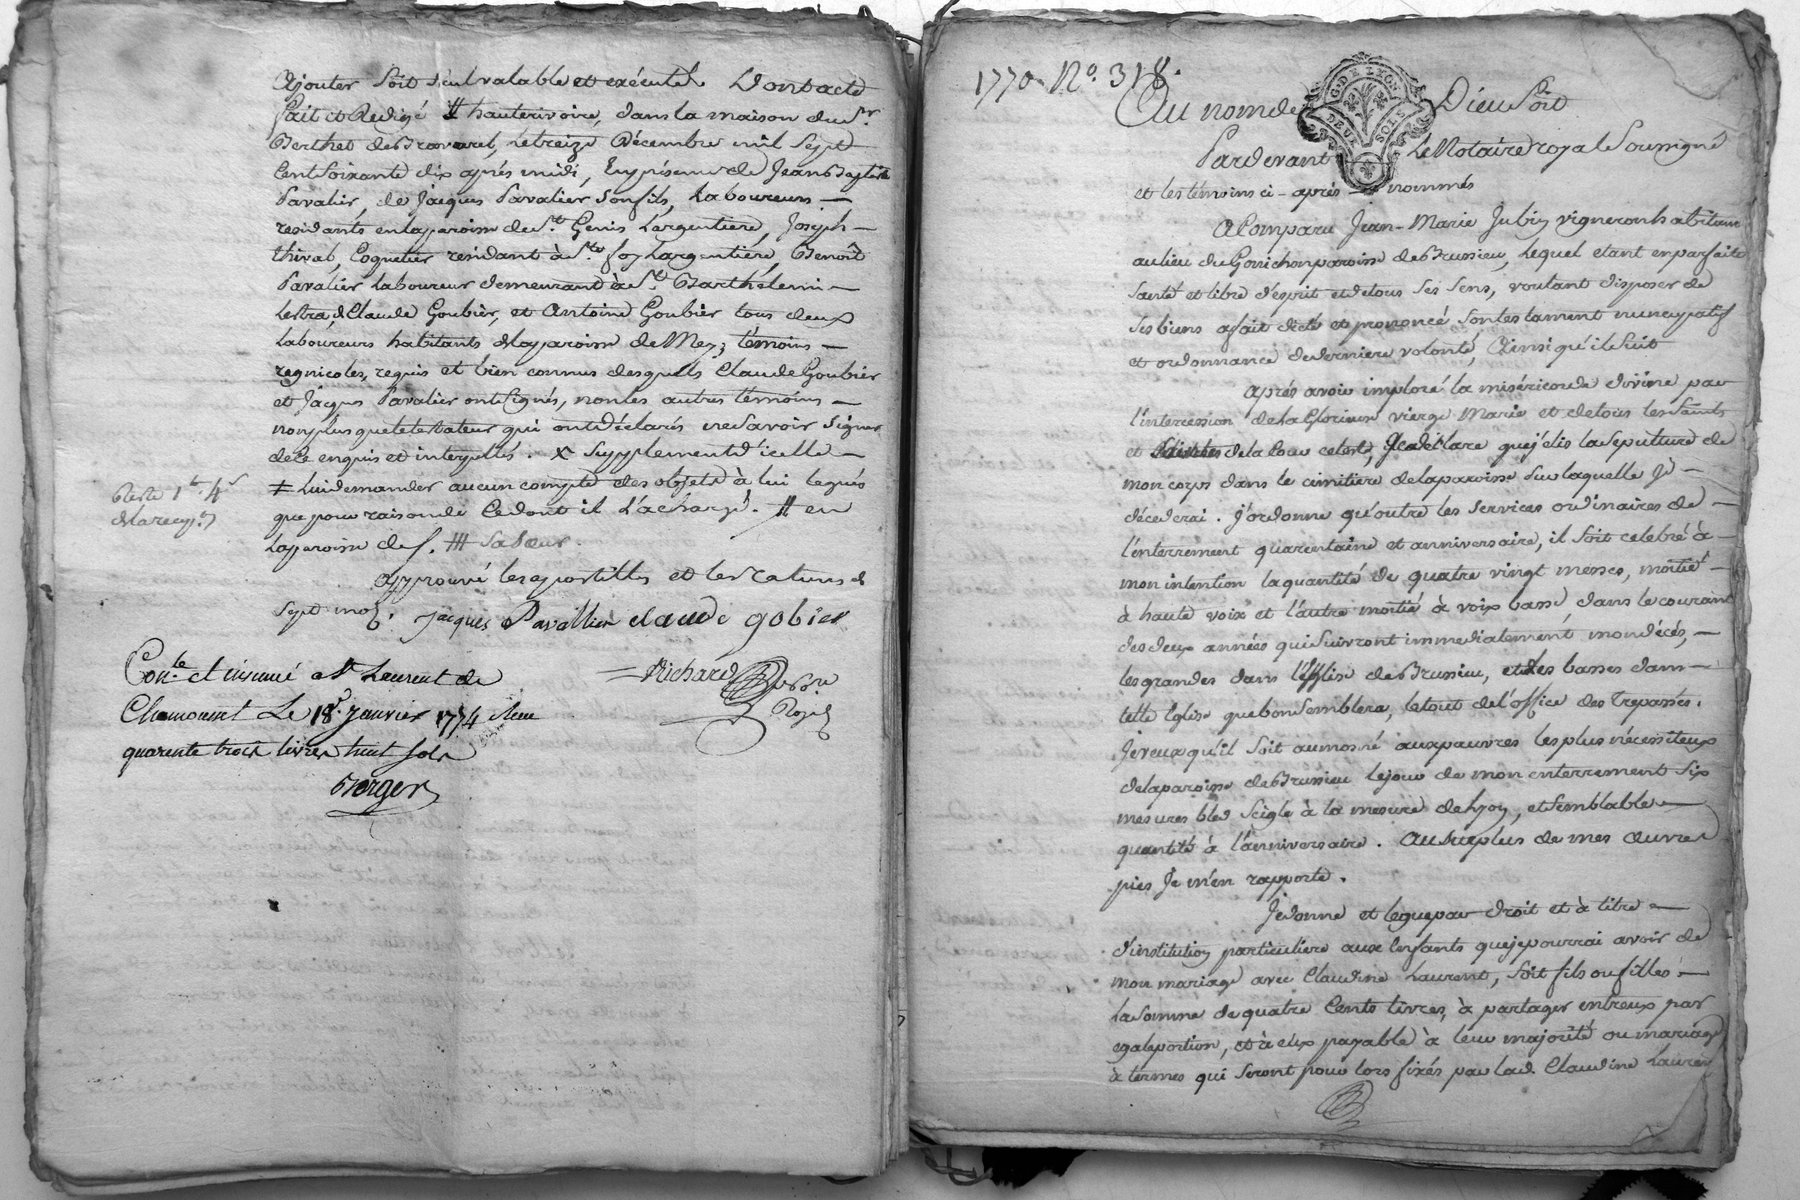 ajouter soit seul valable et exécuté Dont acte
fait et Redigé # hauterivoire, dans la maison du Sr.
Berthet de Bravarel, le treize Décembre mil sept
cent soixante dix après midi, En présence de Jean Baptiste
Pavalier, de Jacques Pavalier son fils, Laboureurs —
residants en laparoisse de St. Genis Largentiere, Joseph —
thival, Coquetier residant à Ste foy Largentiere, Benoît
Pavalier Laboureur demeurant à St. Barthélemi —
Lestra, de Claude Goubier, et Antoine Goubier tous deux
Laboureurs habitants de laparoisse de Meÿs, témoins —
regnicoles, requis et bien connus desquels Claude Goubier
et Jacques Pavalier ont signés, non les autres témoins —
non plus que le testateur qui ont déclarés ne savoir signer
de ce enquis et interpellés. x supplement d'icelle —
≠ lui demander aucun compte des objets à lui legués
que pour raison de ce dont il L'a chargé. # en
laparoisse de f. ### sa sœur.
approuvé les apostilles et les ratures de
sept mots. Jacques Pavallier claude gobier
Richard
Royal
Reste
Con.le et insinué a St Laurent de
Chamousset Le 18e. Janvier 1774 Reçu
quarente trois livres huit sols
Berger
1770 No. 318.
G. DE LYON
DEUX SOLS
Au nom de Dieu soit
Pardevant Le Notaire royal Soussigné
et les témoins ci-après nommés
A Comparu Jean-Marie Jubin vigneron habitant
au lieu du Gonichon paroisse de Brussieu, Lequel etant en parfaite
santé et libre d'esprit et de tous ses sens, voulant disposer de
ses biens a fait dicté et prononcé son testament nuncupatif
et ordonnance de derniere volonté, Ainsi qu'il suit
Après avoir imploré la miséricorde divine par
l'intercession de la Glorieuse vierge Marie et de tous les Saints
et Saintes de la Cour celeste, Je declare que j'élis la sepulture de
mon corps dans le cimitiere de laparoisse sur laquelle je —
décederai. J'ordonne qu'outre les services ordinaires de —
l'enterrement quarentaine et anniversaire, il soit celebré à —
mon intention la quantité de quatre vingt messes, moitié —
à haute voix et l'autre moitié à voix basse, dans le courant
des deux années qui suivront immediatement mon décès, —
les grandes dans l'Eglise de Brussieu, et les basses dans —
telle Eglise que bon semblera, le tout de l'office des Trepassés.
Je veux qu'il soit aumosné aux pauvres les plus nécessiteux
de laparoisse de Brussieu le jour de mon enterrement six
mesures bled seigle à la mesure de Lyon, et semblable —
quantité à l'anniversaire. Au surplus de mes œuvres
pies Je m'en rapporte.
Je donne et legue par droit et à titre —
d'institution particuliere aux Enfants que je pourrai avoir de
mon mariage avec Claudine Laurent, soit fils ou filles —
la somme de quatre Cents livres, à partager entreux par
egale portion, et à eux payable à leur majorité ou mariage
à termes qui seront pour lors fixés par lad. Claudine Laurent